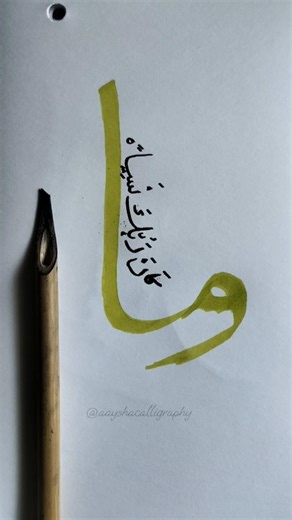 وما
كَانَ رَبُّكَ نَسِيًّا
@aayshacalligraphy